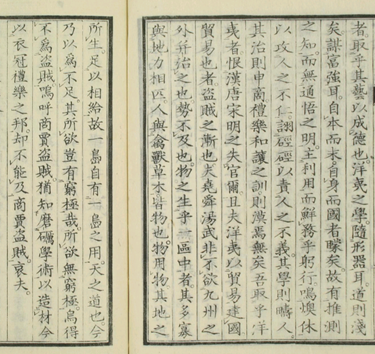 者取乎其藝以成德也洋夷之學隨形器耳道則淺
矣謀富強耳自本而末自身而國者矣故有推測
之知而無通悟之明主利用而鮮務乎躬行休
以攻人之不仁硜硜以責人之不義其學則疇人
其治則申商禮樂和讓之訓則焉無矣吾取乎洋
或者恨漢唐宋明之失官爾且夫洋夷以貿易建國
貿易也者盜賊之漸也夫堯舜湯武非不欲九州之
外并治之也勢不及也物之生乎一區中者其多寡
與地力相匹人與禽獸草木皆物也物用物其地之
所生足以相給故一島自有一島之用天之道也今
乃以為不足其所欲豈有窮極哉所欲無窮極烏得
不為盜賊嗚呼商賈盜賊猶知磨礪學術以造材今
以衣冠禮樂之邦却不能及商賈盜賊哀夫